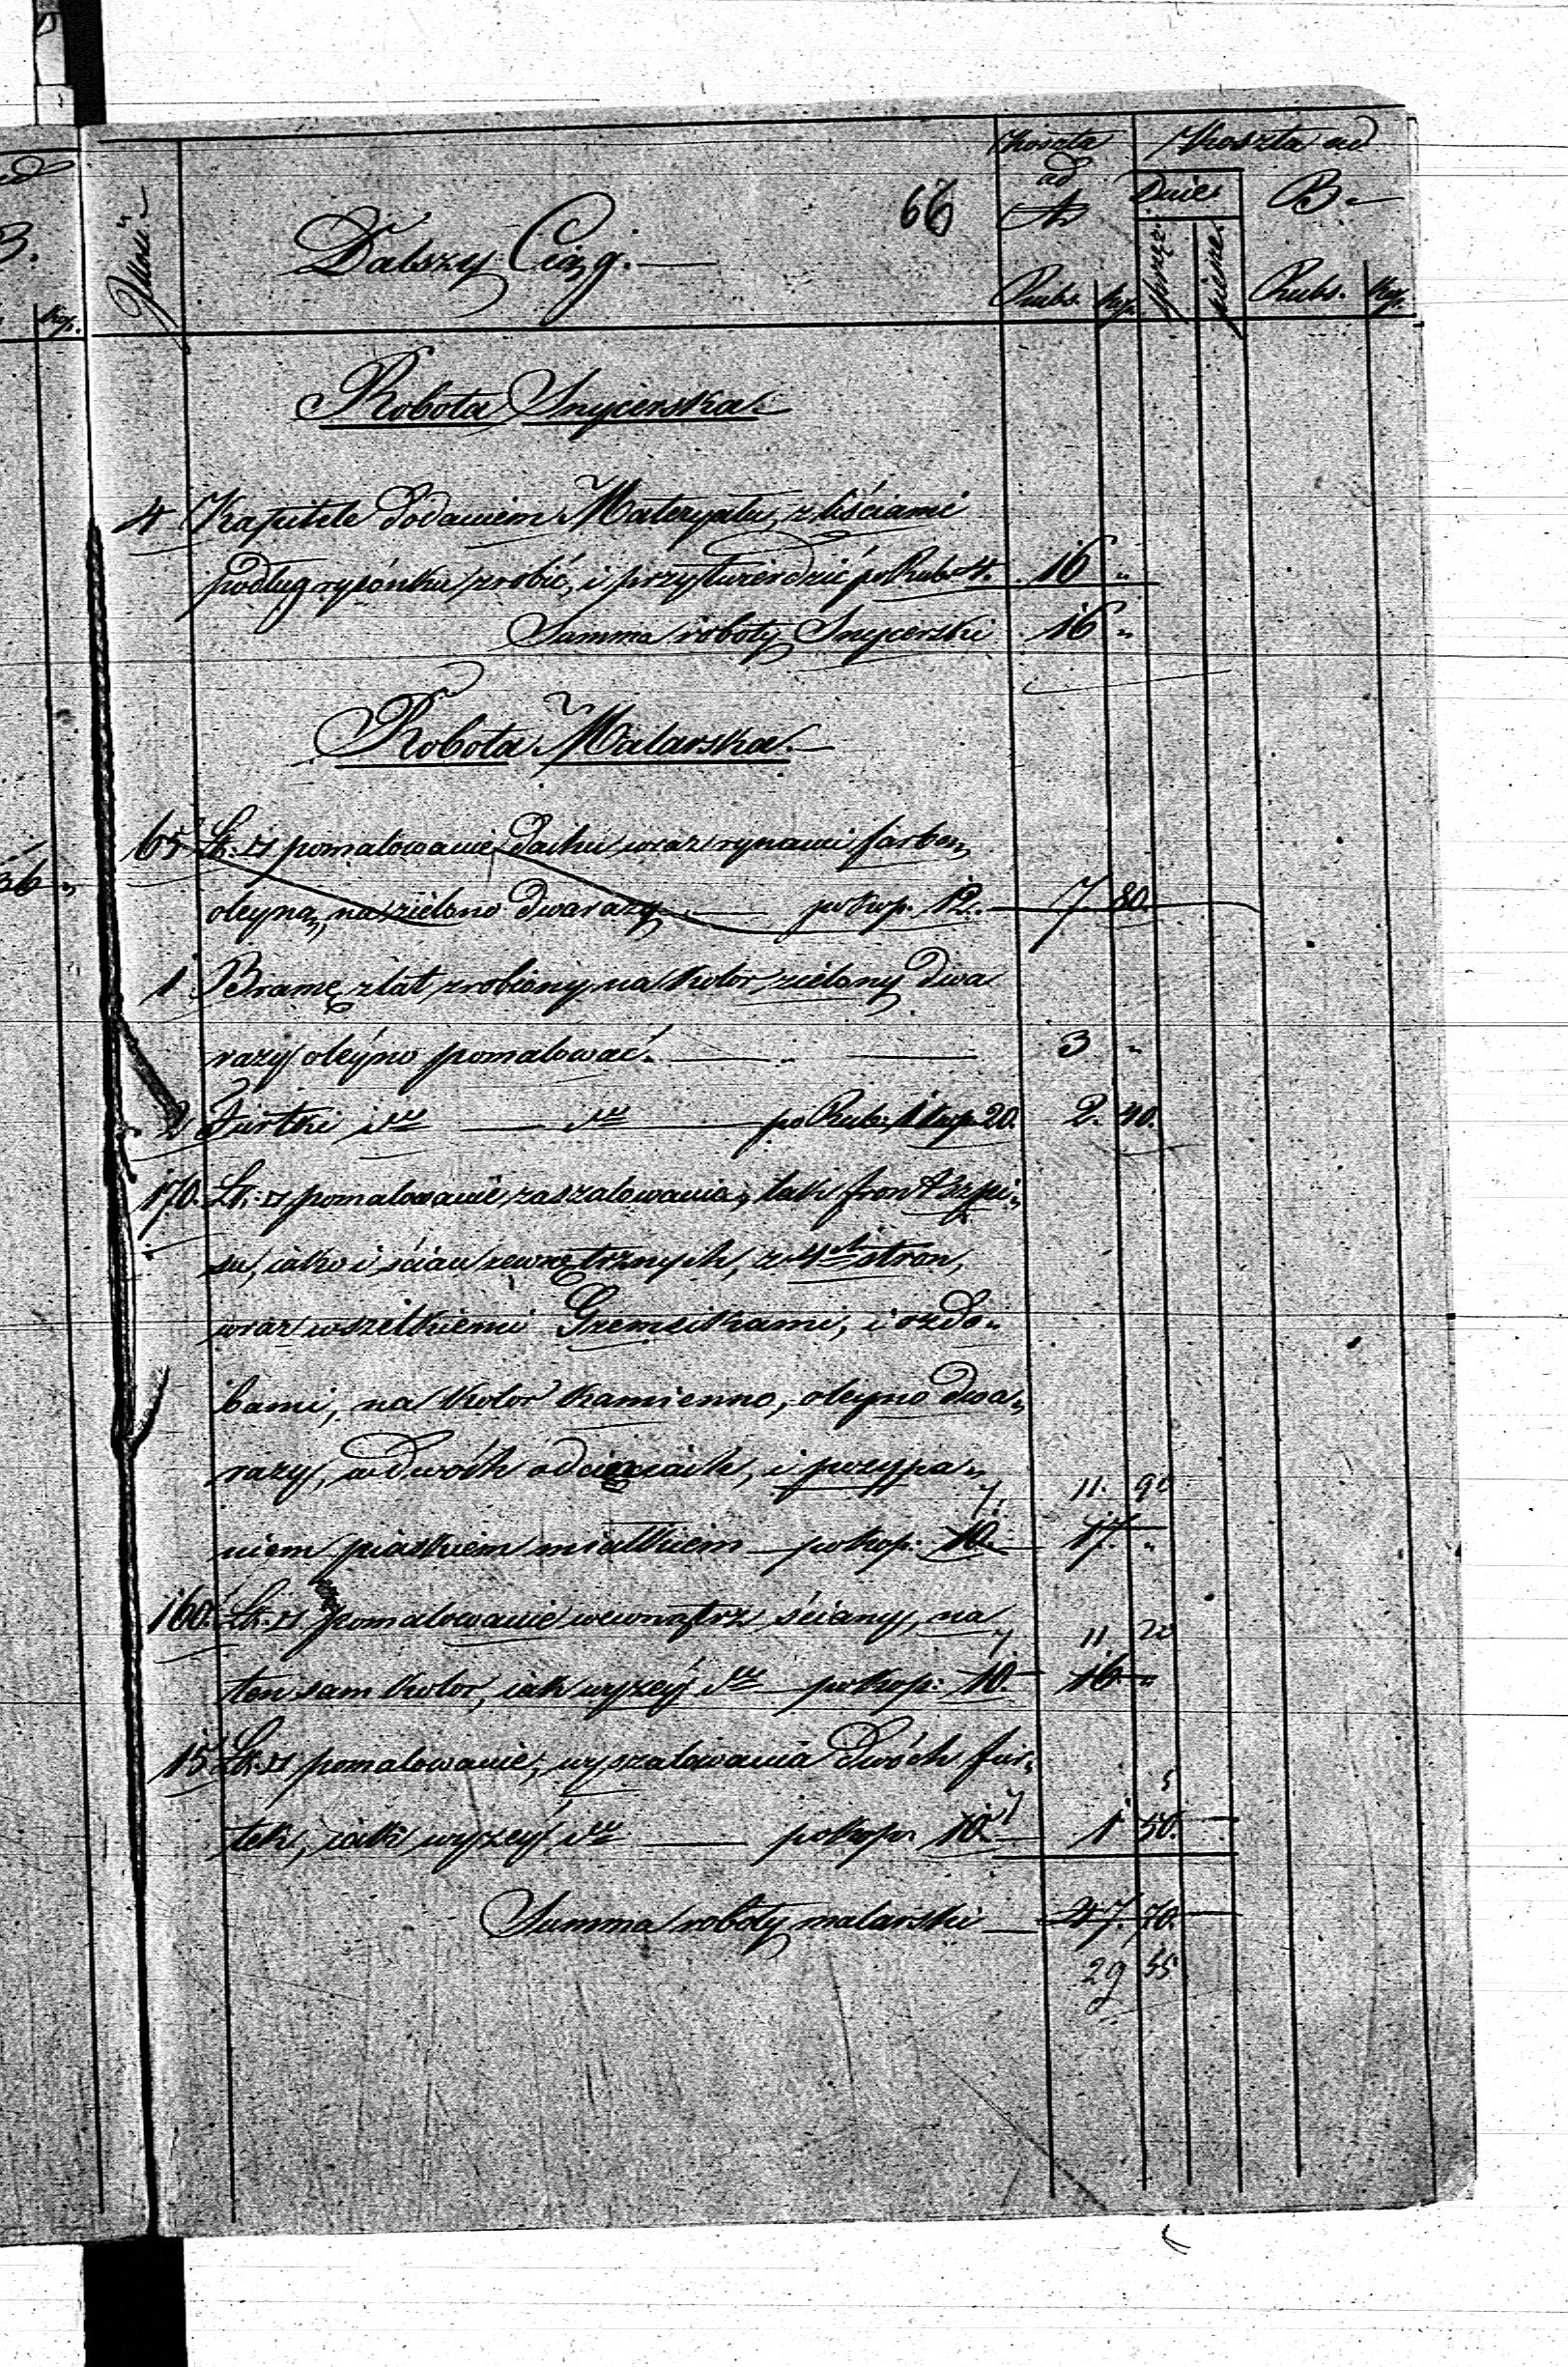 Koszta ad A
Koszta ad B
Dnie
sprzęż.
piesze
Ilość
66
Dalszy Ciąg.
Rubs. kop.
Rubs. kop.
Robota Snycerska
4 Kapitele dodaniem Materyału, z liściami
podług rysónku zrobić, i przytwierdzić po Rubs. 4. 16 „
Summa roboty Snycerski 16 „
Robota Malarska.
65 Łk. □ pomalowanie dachu wraz rynami farbą
oleyną, na zielono dwa razy po kop. 12. 7 80.
1 Bramę z łat zrobiony na kolor zielony dwa
razy oleyno pomalować. 3 „
2 Furtki dto dto po Rub. 1 kop. 20. 2. 40.
170. Łk. □ pomalowanie zaszalowania, tak frontszpi„
su, iako i ścian zewnętrznych, z 4ch stron,
wraz wszelkiemi Gzemsikami, i ozdo„
bami, na kolor kamienno, oleyno dwa„
razy, w dwóch odcięciach, i pozypa„
7. 11. 90
niem piaskiem miałkiem po kop: 10. 17. „
160. Łk. □ pomalowanie wewnątrz ściany, na
7 11 20
ten sam kolor, iak wyzéy dto po kop: 10 16 „
15 Łk. □ pomalowanie, wyszalowania dwóch fur„
7 5
tek, iak wyzéy dto po kop. 10. 1 50.
Summa roboty malarski 47. 70.
29 55